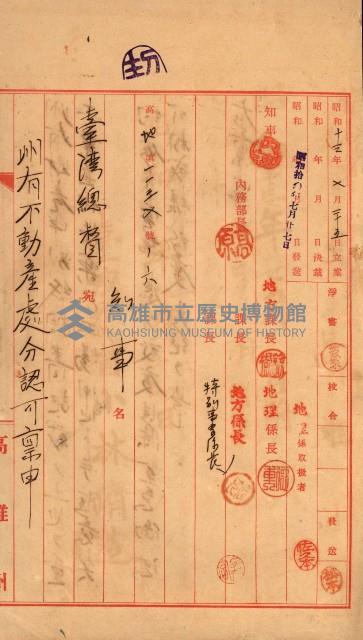 昭和十三年七月二十五日立案
昭和 年 月 日決裁
昭和 年 月 日發送
昭和拾 年七月廿七日
淨書
校合
發送
地方係取扱者
知事
內務部長
地方課長
地理係長
課長
地方係長
係長
高地 第一一三 號ノ六
知事名
臺灣總督 宛
州有不動產處分認可稟申
高雄州
高雄市立歷史博物館
KAOHSIUNG MUSEUM OF HISTORY